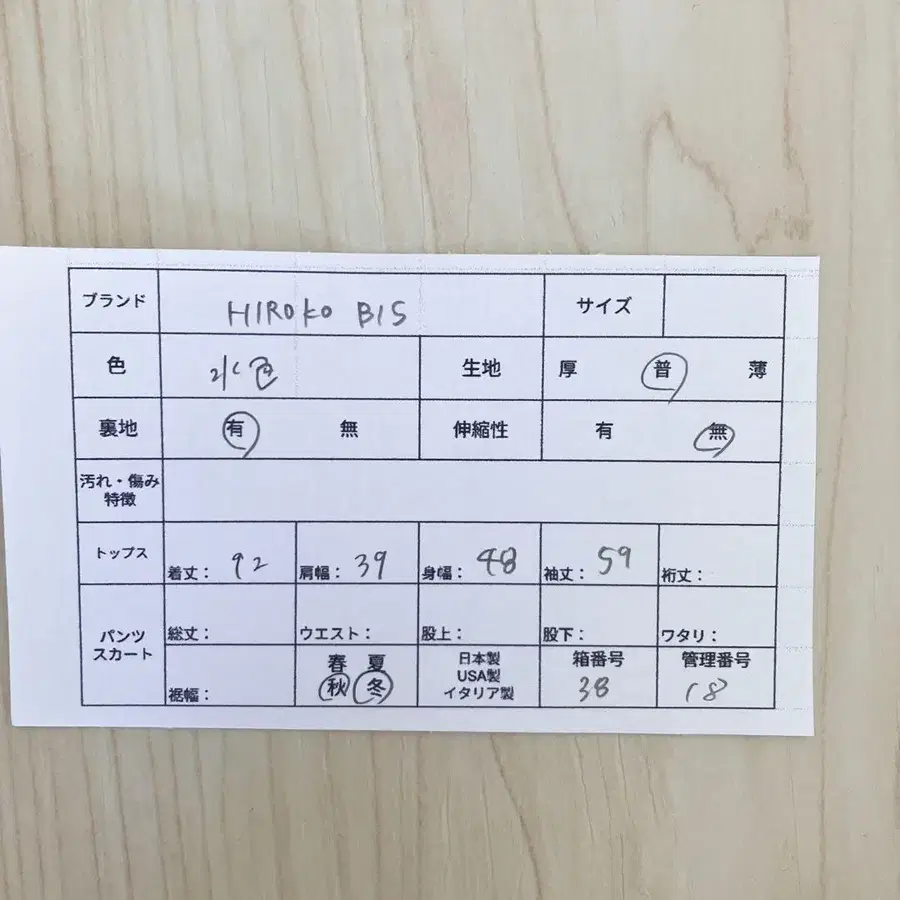 ブランド HIROKO BIS サイズ
色 水色 生地 厚 普 薄
裏地 有 無 伸縮性 有 無
汚れ・傷み
特徴
トップス 着丈： 92 肩幅： 39 身幅： 48 袖丈： 59 裄丈：
パンツ
スカート
総丈： ウエスト： 股上： 股下： ワタリ：
裾幅：
春 夏
秋 冬
日本製
USA製
イタリア製
箱番号
38
管理番号
18